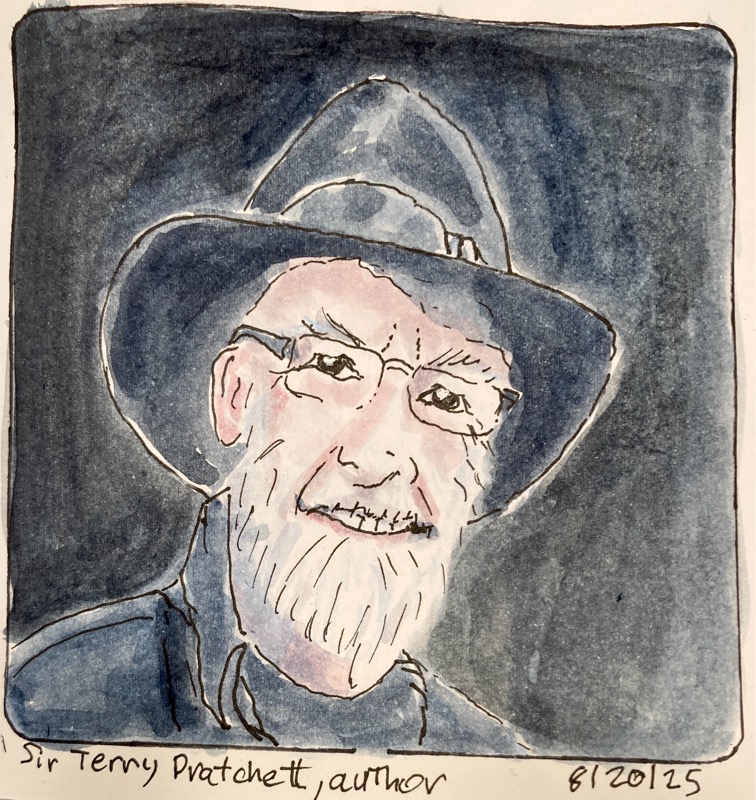 Sir Terry Pratchett, author 8/20/25